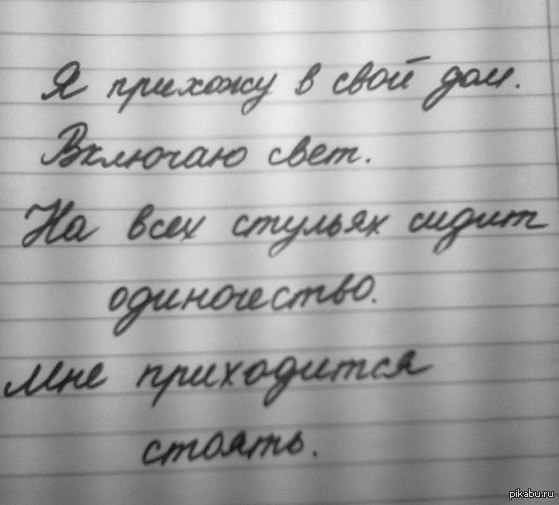 Я прихожу в свой дом.
Включаю свет.
На всех стульях сидит
одиночество.
Мне приходится
стоять.
pikabu.ru